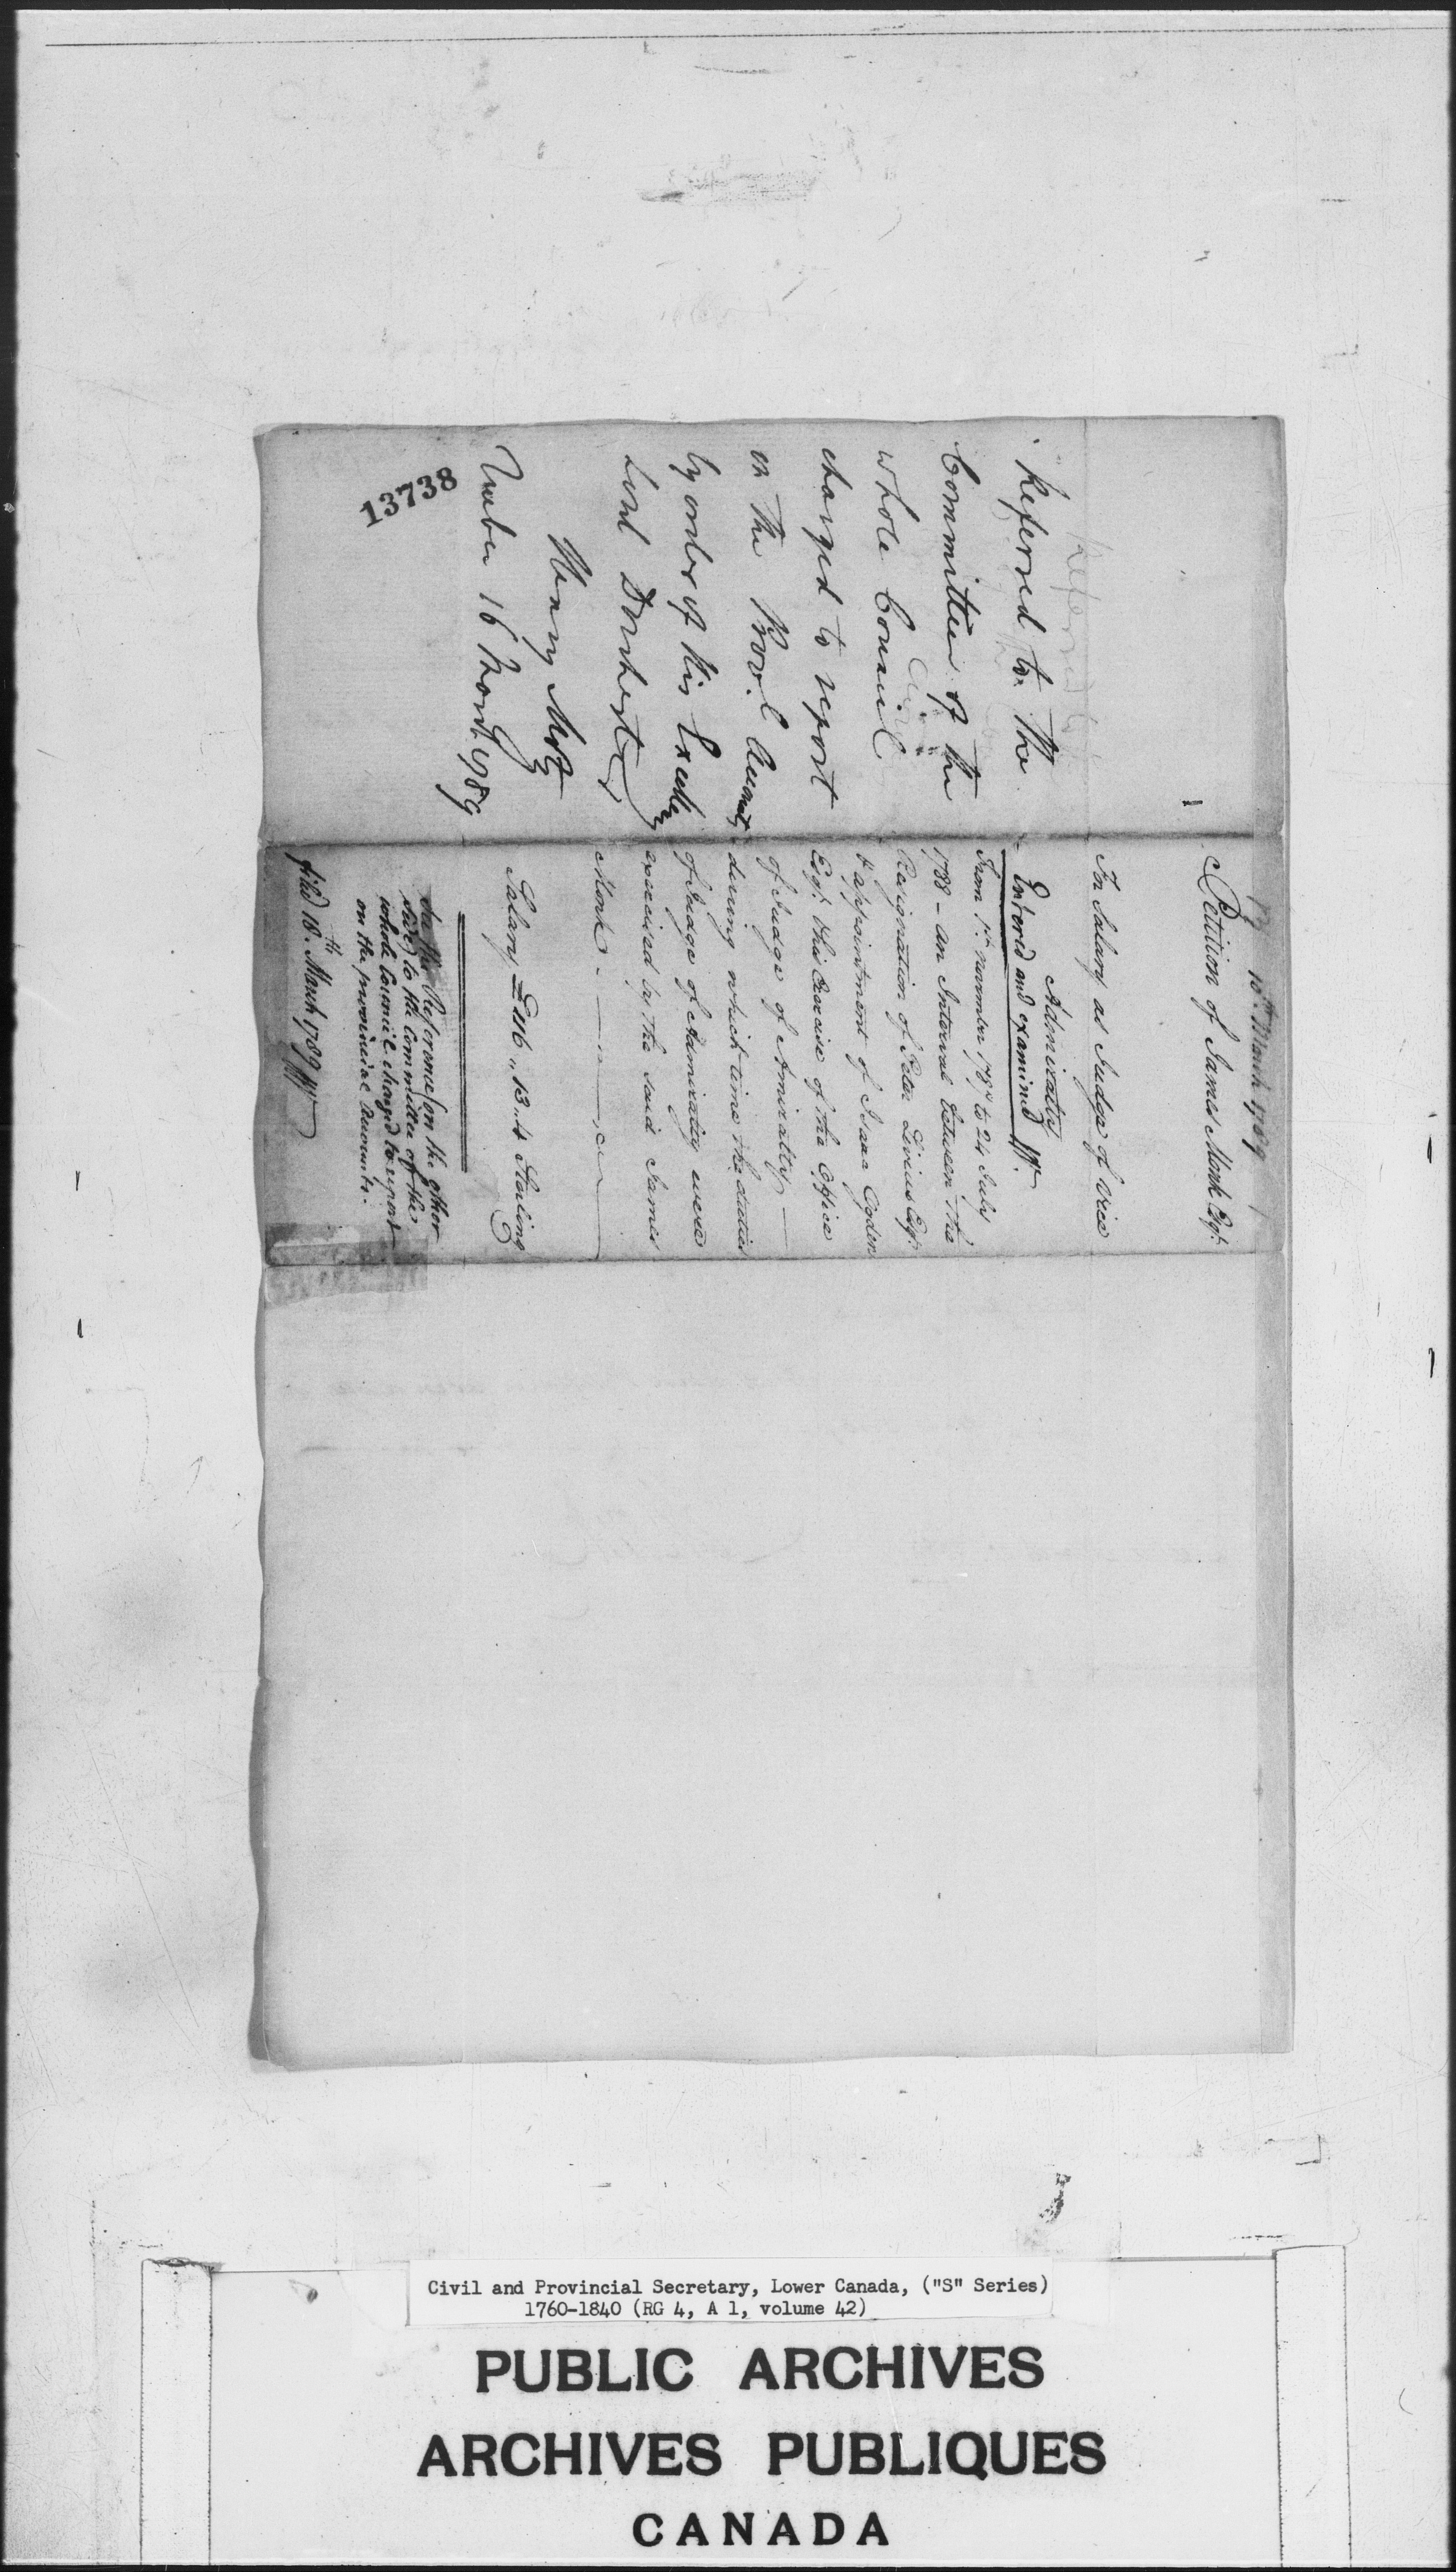 Referred to the
Committee of the
whole Council
charged to report
on the Prov.l Accounts
by order of His Excellency
Lord Dorchester
Henry Motz
Quebec 16 March 1789
13738
10th March 1789
Petition of James Monk Esqr.
For Salary as Judge of Vice
Admiralty
Entered and examined
From 1st november 1787 to 24 July
1788 - an Interval between the
Resignation of Peter Livius Esqr.
& appointment of Isaac Ogden
Esqr. this Exercise of the Office
of Judge of Amiralty —
during which time the duties
of Judge of Admiralty were
exercised by the said James
Monk
Salary £116 „ 13 „ 4 Sterling
See the Reference (on the other
side) to the Committee of the
whole Council charged to report
on the provincial Accounts.
fil'd 18.th March 1789
Civil and Provincial Secretary, Lower Canada, ("S" Series)
1760-1840 (RG 4, A 1, volume 42)
PUBLIC ARCHIVES
ARCHIVES PUBLIQUES
CANADA